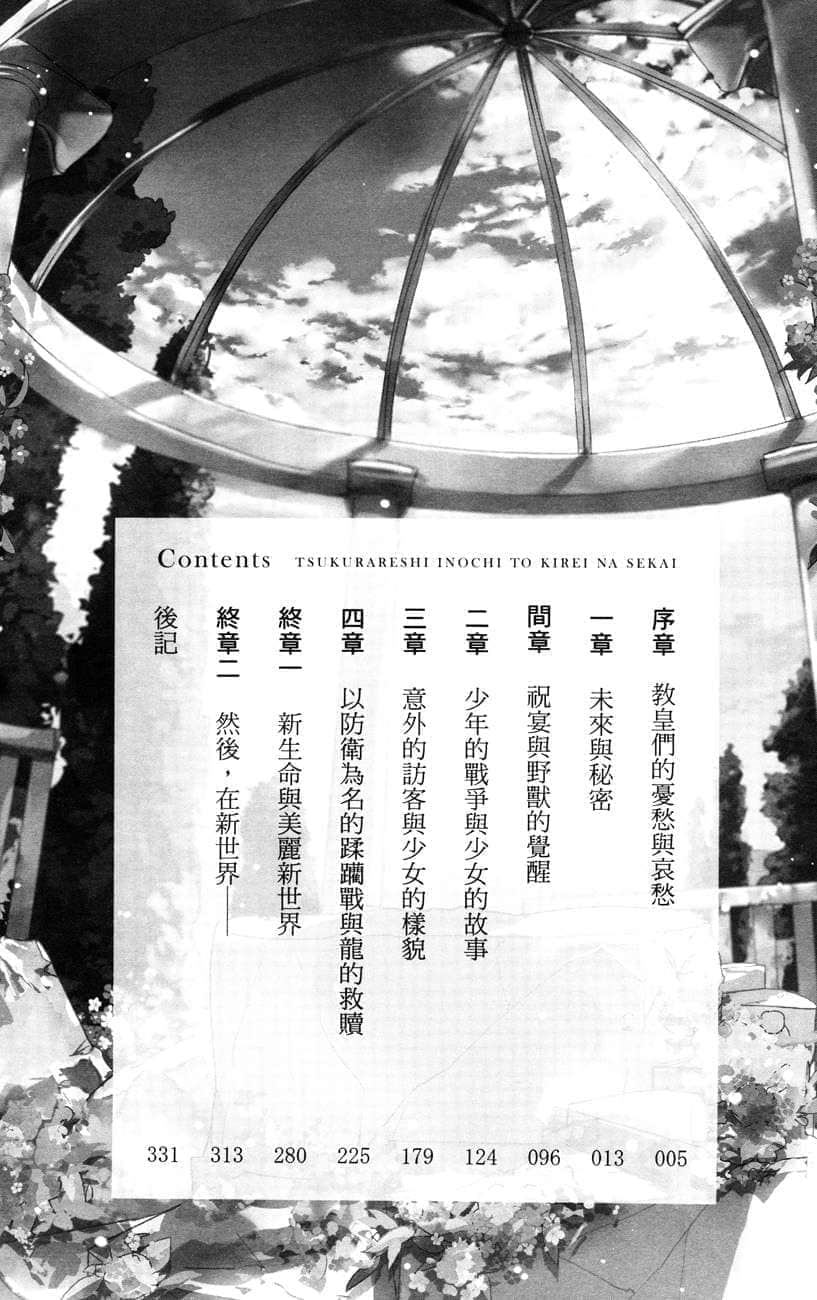 Contents TSUKURARESHI INOCHI TO KIREI NA SEKAI
序章 教皇們的憂愁與哀愁 005
一章 未來與秘密 013
間章 祝宴與野獸的覺醒 096
二章 少年的戰爭與少女的故事 124
三章 意外的訪客與少女的樣貌 179
四章 以防衛為名的蹂躪戰與龍的救贖 225
終章一 新生命與美麗新世界 280
終章二 然後，在新世界—— 313
後記 331